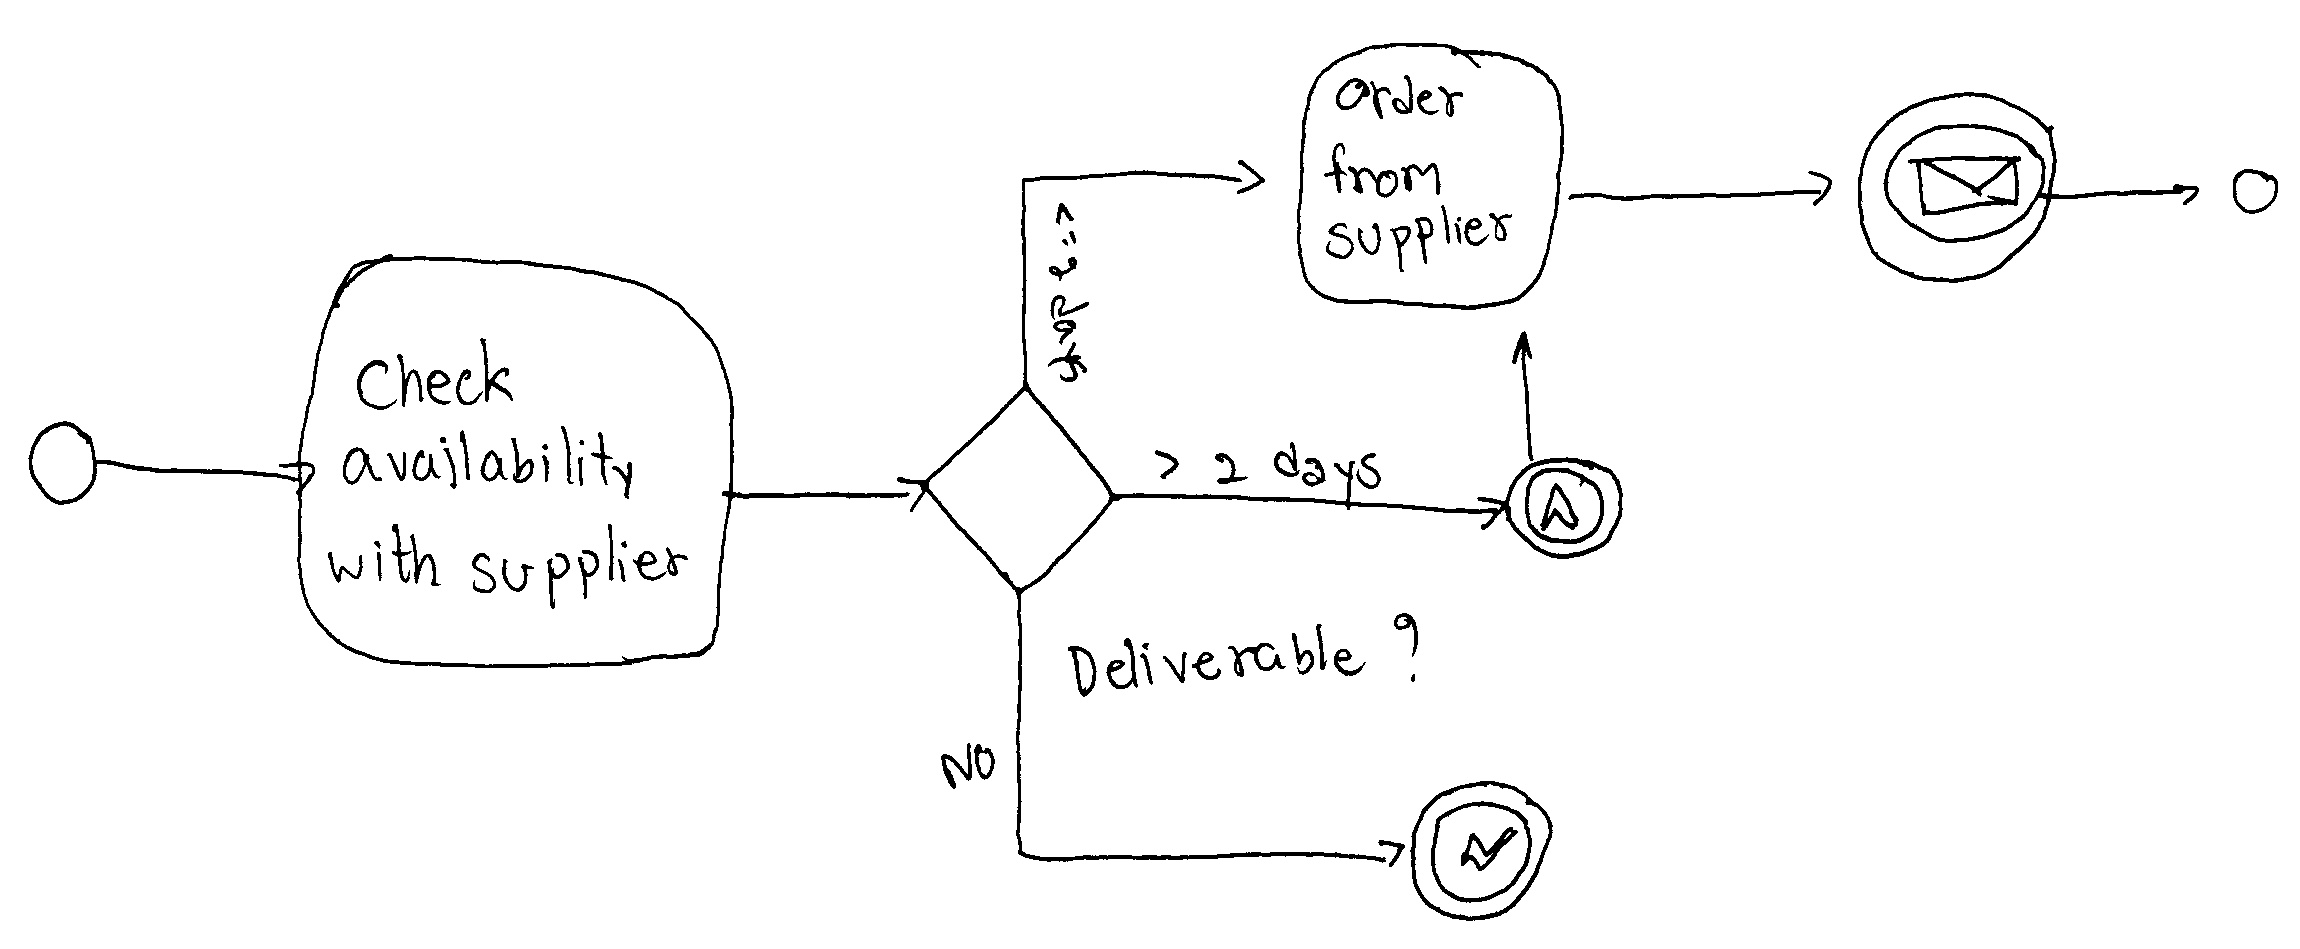 Check
availability
with supplier
<= 2 days
order
from
supplier
> 2 days
Deliverable ?
NO